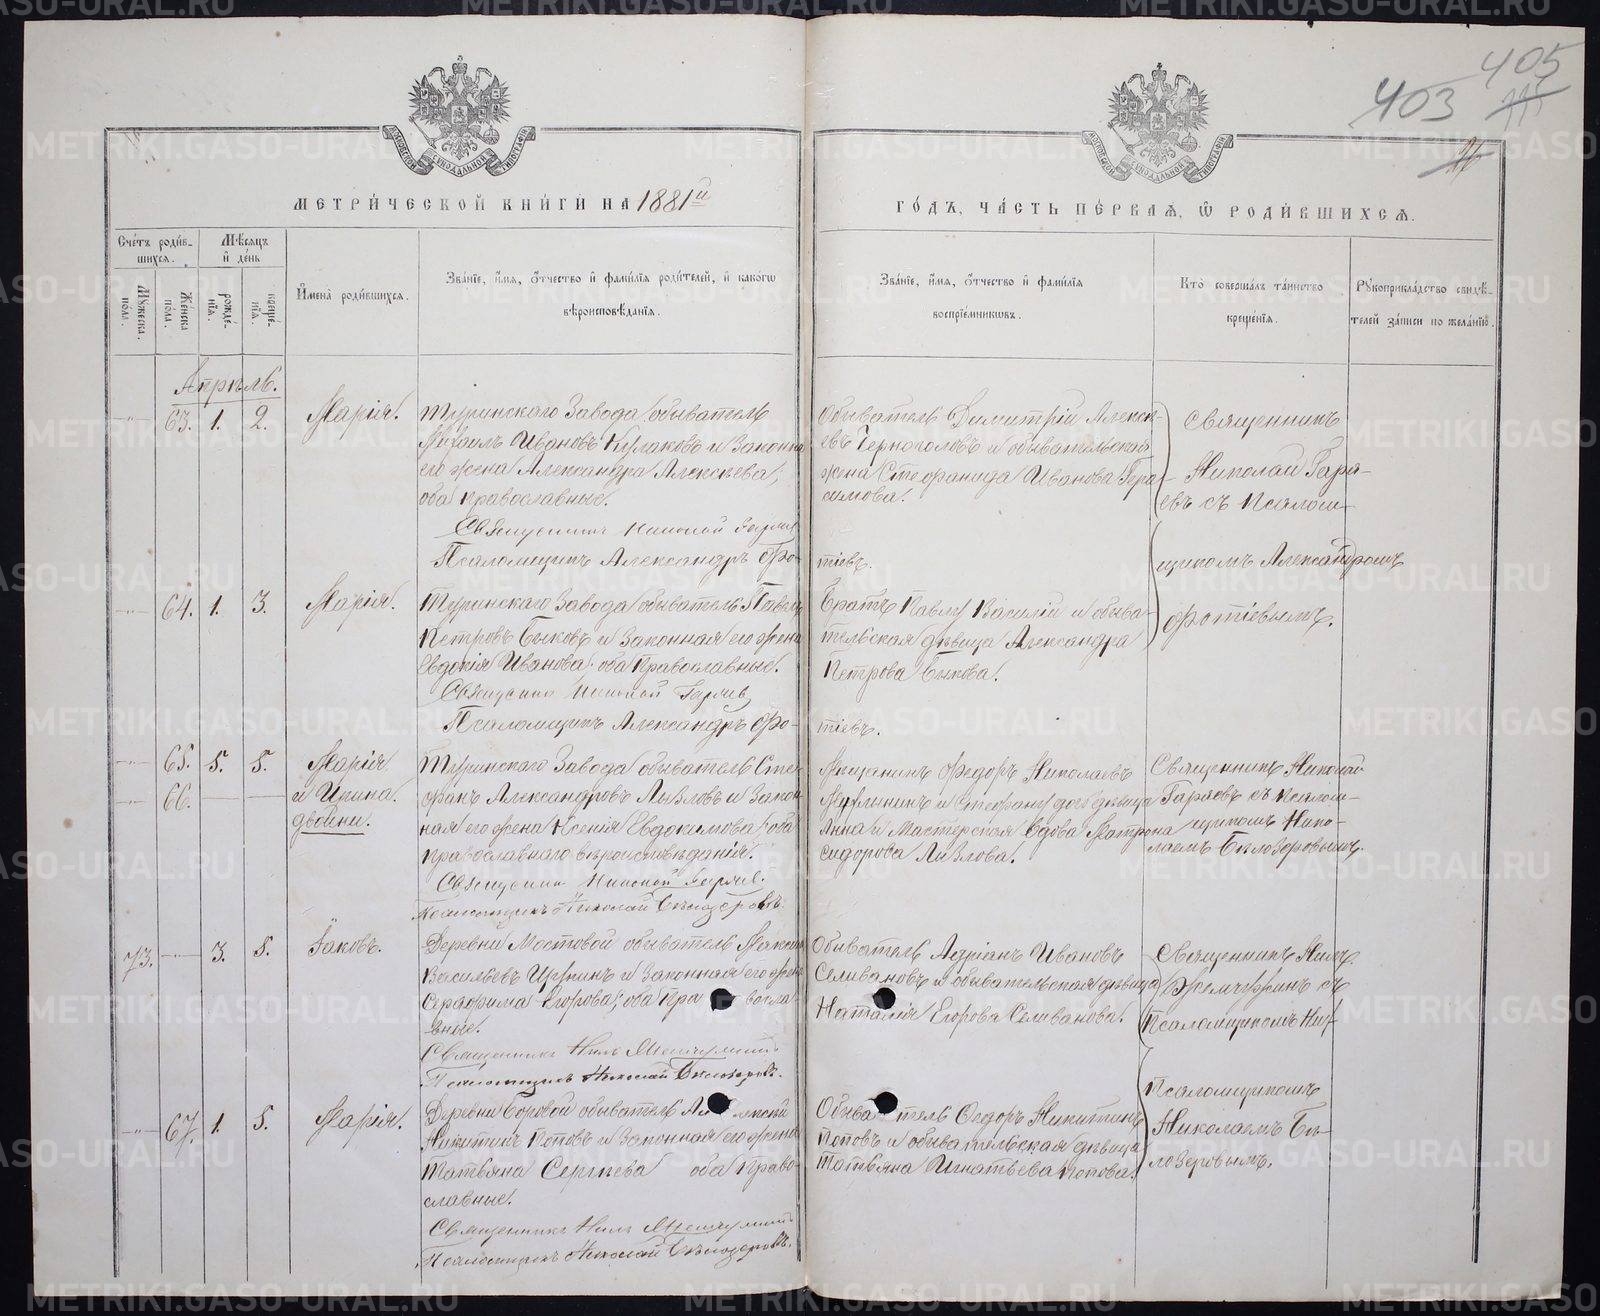 405
403
МОСКОВСКОЙ СѴНОДАЛЬНОЙ ТИПОГРАФІИ
МОСКОВСКОЙ СѴНОДАЛЬНОЙ ТИПОГРАФІИ
МЕТРИ́ЧЕСКОЙ КНИ́ГИ НА 1881й
ГО́ДЪ, ЧА́СТЬ ПЕ́РВАѦ, Ѡ РОДИ́ВШИХСѦ.
Сче́тъ роди́в-
шихсѧ.
Мѣ́сѧцъ
и҆ де́нь
Мꙋ́жеска
по́ла.
Же́нска
по́ла.
рожде́-
нїѧ.
креще́-
нїѧ.
И҆мена̀ роди́вшихсѧ.
Зва́нїе, и҆́мѧ, ѻ҆́тчество и҆ фами́лїѧ роди́телей, и҆ како́гѡ
вѣроисповѣ́данїѧ.
Зва́нїе, и҆́мѧ, ѻ҆́тчество и҆ фами́лїѧ
воспрїе́мникѡвъ.
Кто̀ соверша́лъ та́инство
креще́нїѧ.
Рꙋкоприкла́дство свидѣ́-
телей за́писи по жела́нїю.
Апрѣль.
63. 1. 2. Марія.
Туринскаго Завода обыватель
Михаилъ Ивановъ Кулаковъ и Законная
его жена Александра Алексѣева,
оба православные.
Священникъ Николай Гаряев
Псаломщикъ Александръ Фо-
Обыватель Димитрій Алексѣ-
евъ Черноголовъ и обывательская
жена Стефанида Иванова Гера-
симова.
тіевъ.
Священникъ
Николай Гаря-
евъ съ Псалом-
щикомъ Александромъ
Фотіевымъ.
64. 1. 3. Марія.
Туринскаго Завода обыватель Павелъ
Петровъ Быковъ и Законная его жена
Евдокія Иванова оба Православные.
Священникъ Николай Гаряев
Псаломщикъ Александръ Фо-
Братъ Павлу Василій и обыва-
тельская дѣвица Александра
Петрова Быкова.
тіевъ.
65. 5. 5. Марія
66. и Ирина.
двойни.
Туринскаго Завода обыватель Сте-
фанъ Александровъ Лызловъ и Закон-
ная его жена Ксенія Евдокимова оба
православнаго вѣроисповѣданія.
Священникъ Николай Гаряев.
Псаломщикъ Николай Бѣлозеровъ.
Мѣщанинъ Федоръ Николаевъ
и Стефану дочь дѣвица
Анна и Мастерская Вдова Матрона
Сидорова Лызлова.
Священникъ Николай
Гаряевъ съ Псалом-
щикомъ Нико-
лаемъ Бѣлозеровымъ.
73. 3. 5. Іаковъ.
Деревни Мостовой обыватель Максимъ
Васильевъ и Законная его жена
Серафима Егорова, оба Православ-
вные.
Священникъ Нилъ
Псаломщикъ Николай Бѣлозеровъ.
Обыватель Адріанъ Ивановъ
Селивановъ и обывательская дѣвица
Наталія Егорова Селиванова.
Священникъ Нилъ
съ
Псаломщикомъ Ни-
67. 1. 5. Марія.
Деревни Боровой обыватель Алексѣй
Никитинъ Поповъ и Законная его жена
Татьяна Сергѣева оба Право-
славные.
Священникъ Нилъ
Псаломщикъ Николай Бѣлозеровъ.
Обыватель Федоръ Никитинъ
Поповъ и обывательская дѣвица
Татьяна Игнатьева Попова.
Псаломщикомъ
Николаемъ Бѣ-
лозеровымъ.
METRIKI.GASO-URAL.RU